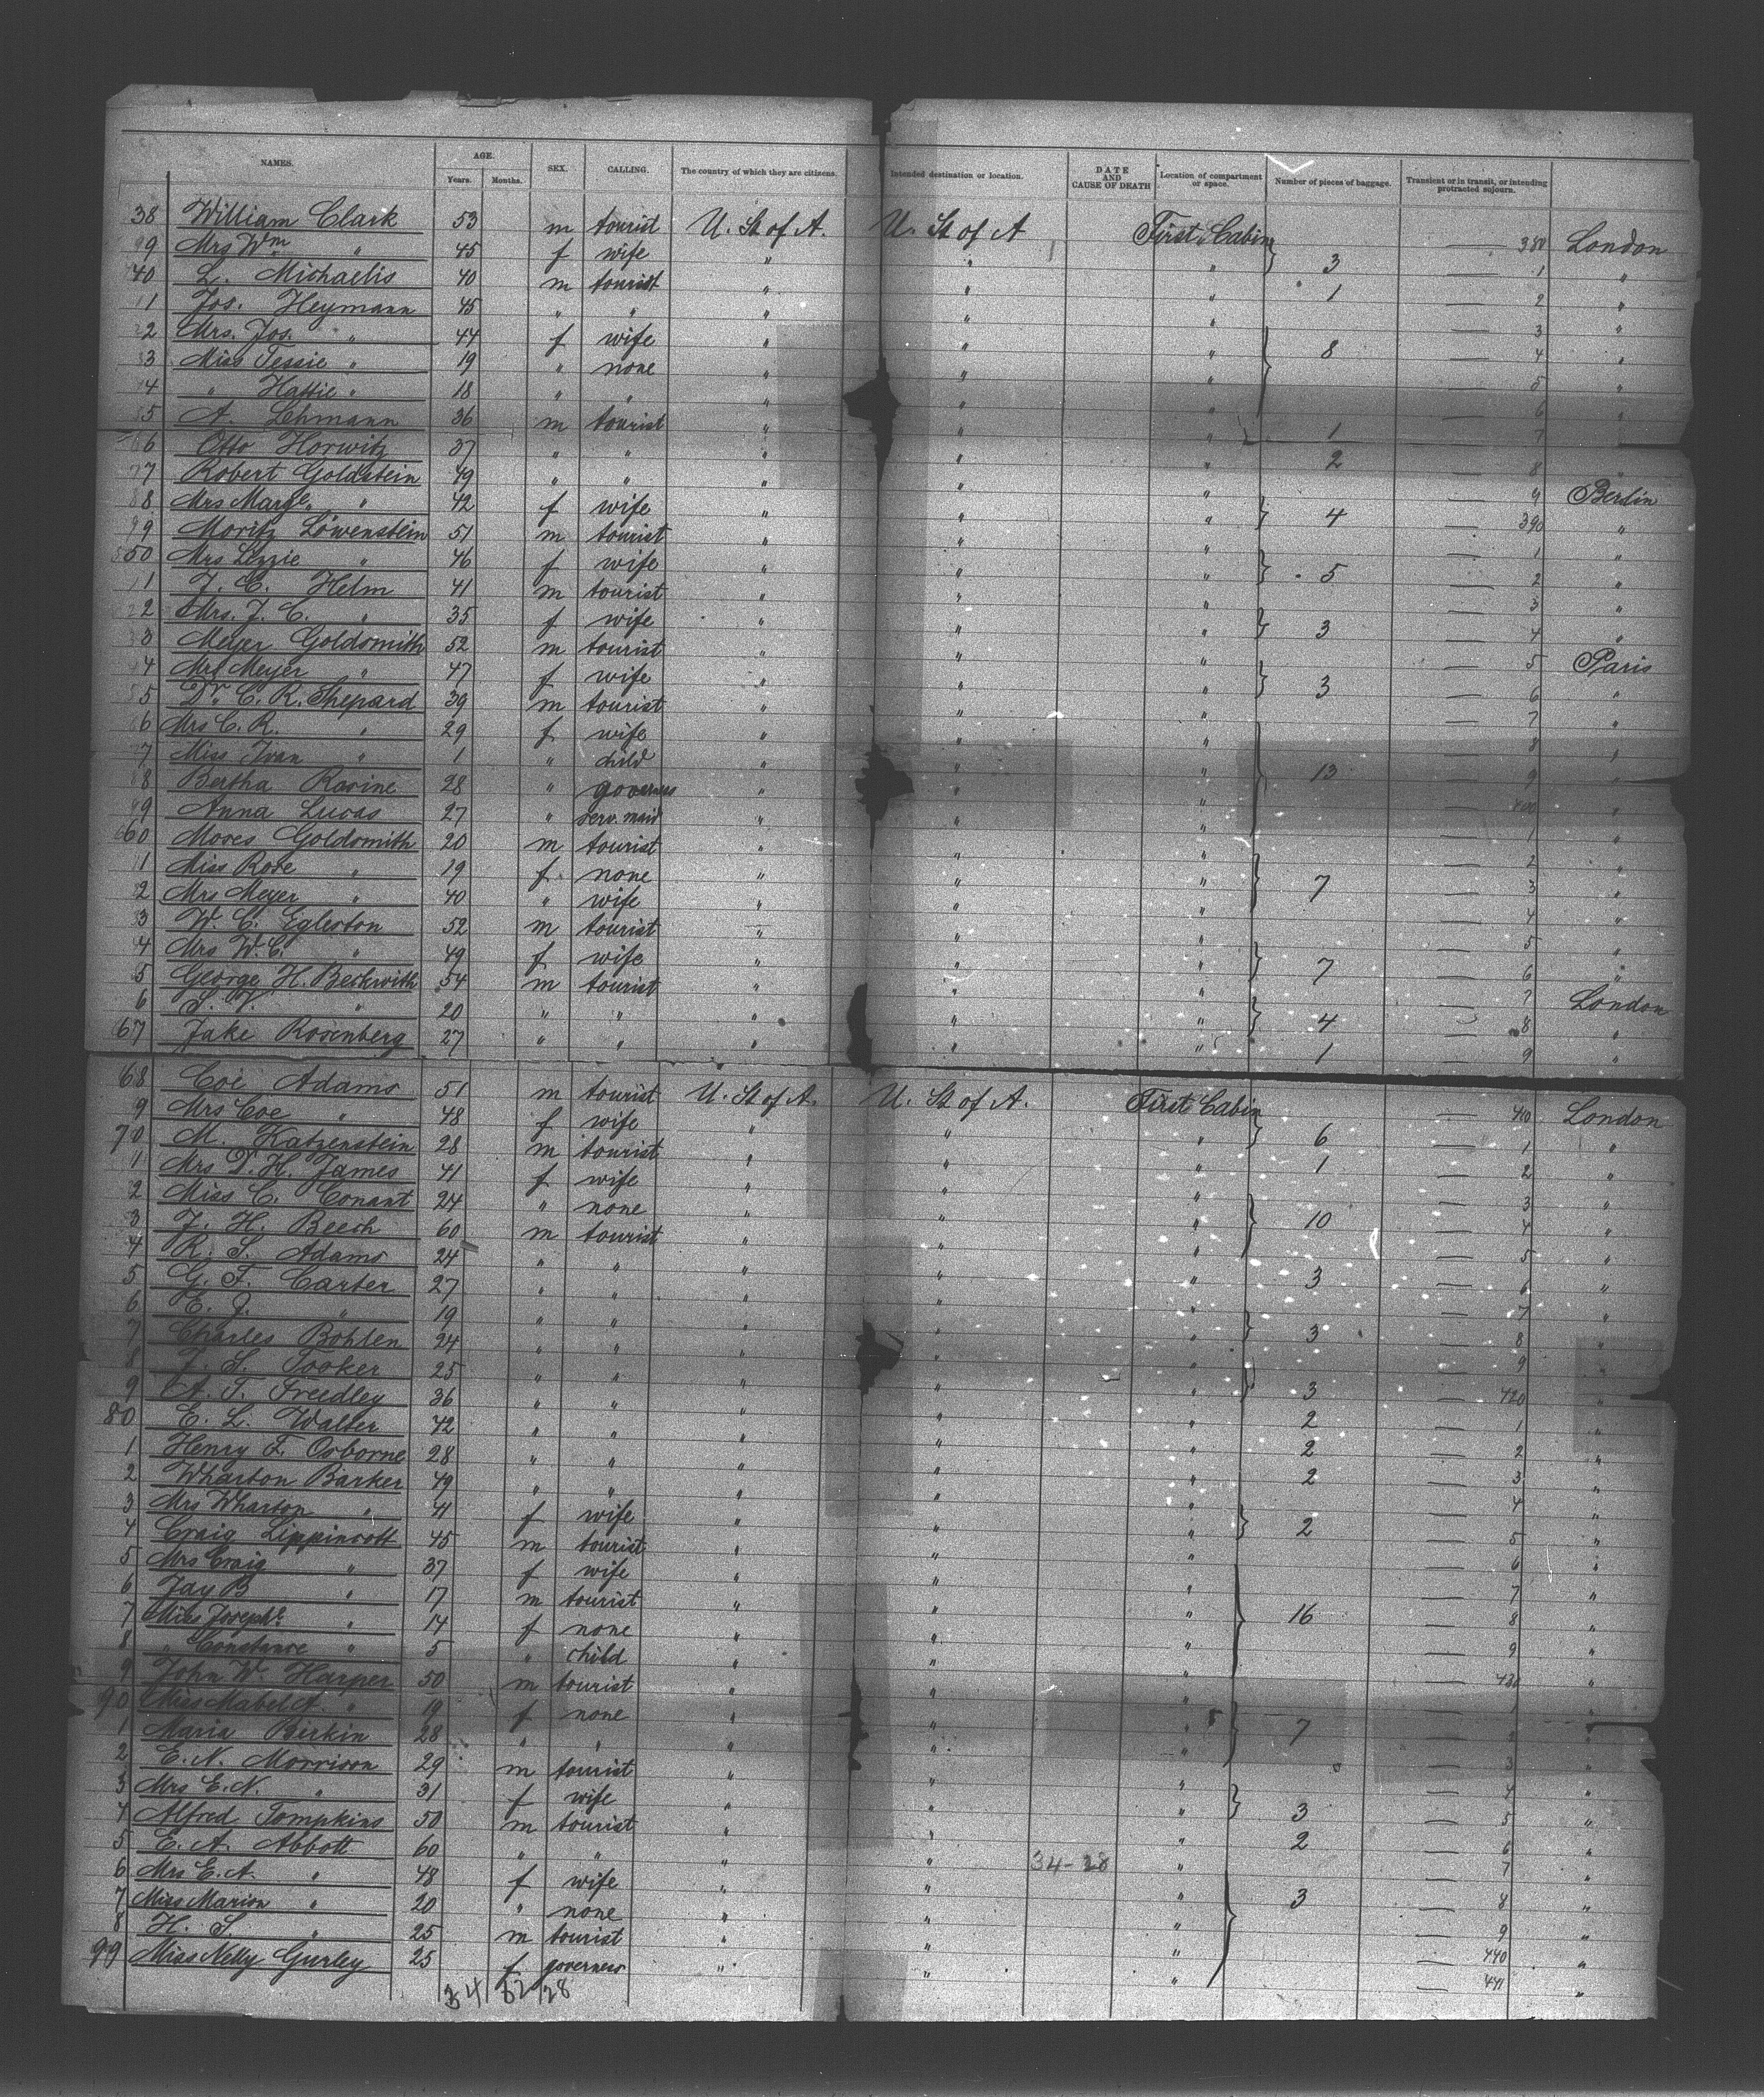 NAMES. AGE. Years. Months. SEX. CALLING. The country of which they are citizens. Intended destination or location. DATE AND CAUSE OF DEATH Location of compartment or space. Number of pieces of baggage. Transient or in transit, or intending protracted sojourn.
38 William Clark 53 m tourist U. St of A. U. St of A First Cabin — 380 London
9 Mrs Wm " 45 f wife " " " 3 — 1 "
40 L. Michaelis 40 m tourist " " " 1 — 2 "
1 Jos. Heymann 45 " " " " " — 3 "
2 Mrs. Jos. " 44 f wife " " " 8 — 4 "
3 Miss Tessie " 19 " none " " " — 5 "
4 " Hattie " 18 " " " " " — 6 "
5 A. Lehmann 36 m tourist " " " 1 — 7 "
6 Otto Horwitz 37 " " " " " 2 — 8 "
7 Robert Goldstein 49 " " " " " — 9 Berlin
8 Mrs Marge. " 42 f wife " " " 4 — 390 "
9 Moritz Löwenstein 51 m tourist " " " — 1 "
50 Mrs Lizzie " 46 f wife " " " 5 — 2 "
1 J. C. Helm 41 m tourist " " " — 3 "
2 Mrs. J. C. " 35 f wife " " " 3 — 4 "
3 Meyer Goldsmith 52 m tourist " " " — 5 Paris
4 Mrs Meyer " 47 f wife " " " 3 — 6 "
5 Dr. C. R. Shepard 39 m tourist " " " — 7 "
6 Mrs C. R. " 29 f wife " " " — 8 "
7 Miss Ivan " 1 " child " " " 13 — 9 "
8 Bertha Ravine 28 " governess " " " — 400 "
9 Anna Lucas 27 " serv. maid " " " — 1 "
60 Moses Goldsmith 20 m tourist " " " — 2 "
1 Miss Rose " 19 f none " " " 7 — 3 "
2 Mrs Meyer " 40 " wife " " " — 4 "
3 W. C. Egleston 52 m tourist " " " — 5 "
4 Mrs W. C. " 49 f wife " " " 7 — 6 "
5 George H. Beckwith 54 m tourist " " " — 7 London
6 S. V. " 20 " " " " " 4 — 8 "
67 Jake Rosenberg 27 " " " " " 1 — 9 "
68 Coe Adams 51 m tourist U. St of A. U. St of A. First Cabin — 410 London
9 Mrs Coe " 48 f wife " " " 6 — 1 "
70 M. Katzenstein 28 m tourist " " " 1 — 2 "
1 Mrs D. H. James 41 f wife " " " — 3 "
2 Miss C. Conant 24 " none " " " 10 — 4 "
3 J. H. Beech 60 m tourist " " " — 5 "
4 R. S. Adams 24 " " " " " 3 — 6 "
5 G. F. Carter 27 " " " " " — 7 "
6 E. J. " 19 " " " " " 3 — 8 "
7 Charles Bohlen 24 " " " " " — 9 "
8 J. S. Tooker 25 " " " " " 3 — 420 "
9 A. T. Freedley 36 " " " " " 2 — 1 "
80 E. L. Walter 42 " " " " " 2 — 2 "
1 Henry F. Osborne 28 " " " " " 2 — 3 "
2 Wharton Barker 49 " " " " " — 4 "
3 Mrs Wharton " 41 f wife " " " 2 — 5 "
4 Craig Lippincott 45 m tourist " " " — 6 "
5 Mrs Craig " 37 f wife " " " — 7 "
6 Jay B " 17 m tourist " " " 16 — 8 "
7 Miss Josephe " 14 f none " " " — 9 "
8 " Constance " 5 " child " " " — 430 "
9 John W. Harper 50 m tourist " " " — 1 "
90 Miss Mabel A. " 19 f none " " " 7 — 2 "
1 Maria Berkin 28 " " " " " — 3 "
2 E. N. Morrison 29 m tourist " " " — 4 "
3 Mrs E. N. " 31 f wife " " " 3 — 5 "
4 Alfred Tompkins 50 m tourist " " " 2 — 6 "
5 E. A. Abbott 60 " " " " 34-28 " — 7 "
6 Mrs E. A. " 48 f wife " " " 3 — 8 "
7 Miss Marion " 20 " none " " " — 9 "
8 H. S. " 25 m tourist " " " — 440 "
99 Miss Nelly Gurley 25 f governess " " " — 441 "
34 32 28